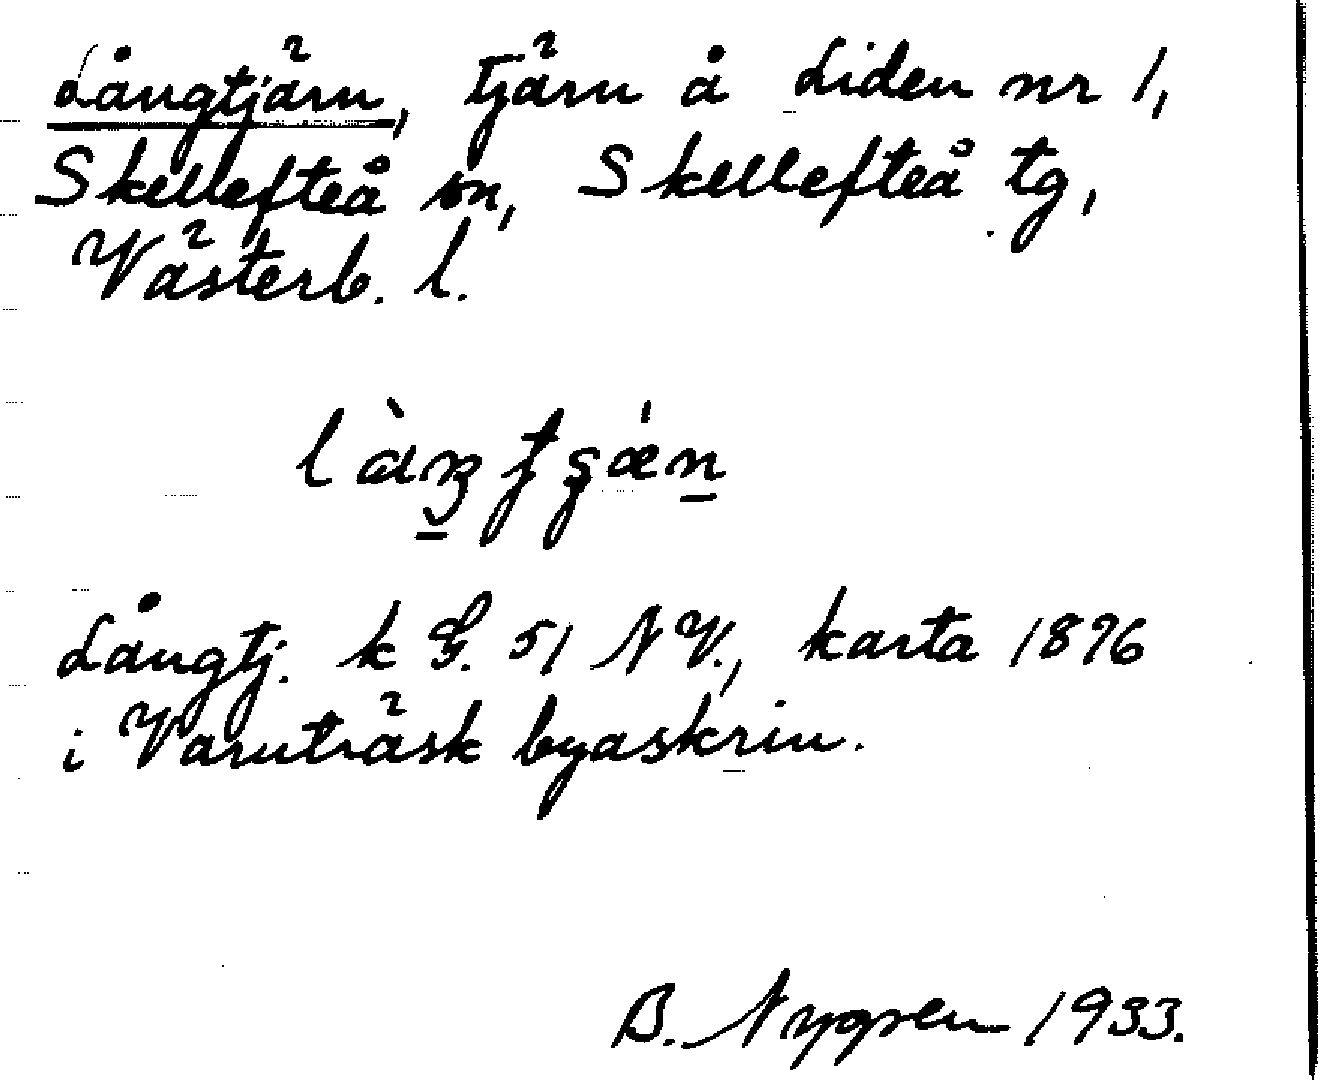 Långtjärn, tjärn å Liden nr 1,
Skellefteå sn, Skellefteå tg,
Västerb. l.
Långtj. k G. 51 NV., karta 1896
i Varuträsk byaskrin.
B. Nygren 1933.